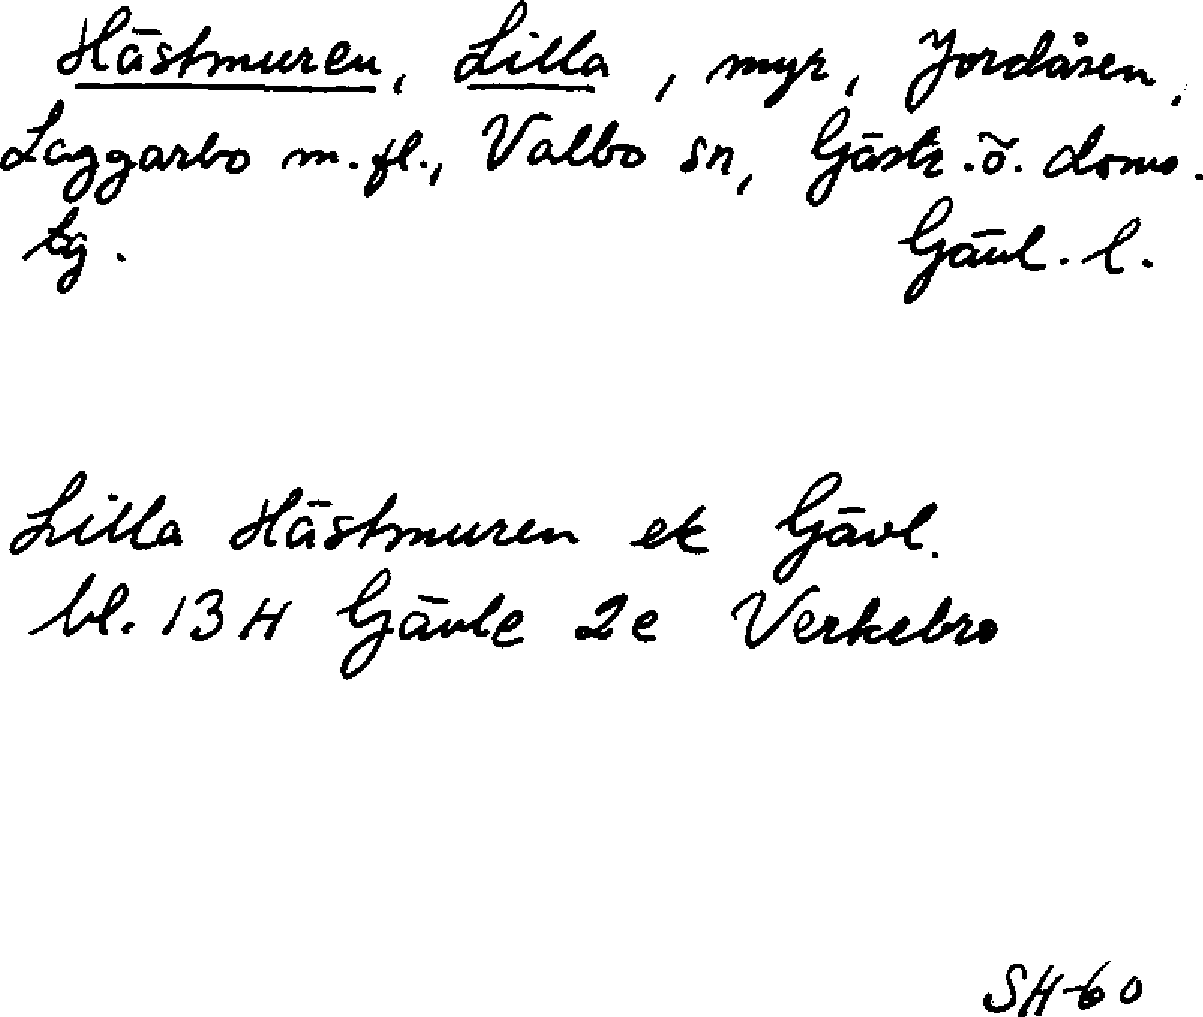 Hästmuren, Lilla, myr, Jordåsen,
Laggarbo m.fl., Valbo sn, Gästr.ö. doms.
tg. Gävl. l.
Lilla Hästmuren ek Gävl.
bl. 13H Gävle 2e Verkebro
SH-60